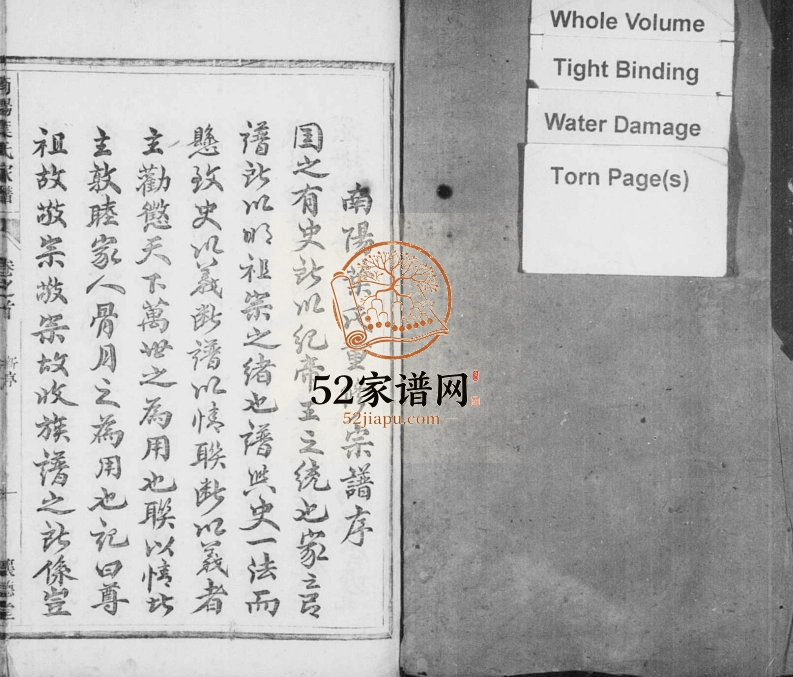 南陽葉氏重修宗譜序
国之有史所以紀帝王之統也家之有
譜所以明祖宗之緒也譜與史一法而
懸致史以義断譜以情联断以義者
主勸懲天下萬世之為用也联以情者
主敦睦家人骨月之為用也記曰尊
祖故敬宗敬宗故收族譜之所係豈
南陽葉氏家譜
卷之首
懷德堂
52家谱网
52jiapu.com
Whole Volume
Tight Binding
Water Damage
Torn Page(s)